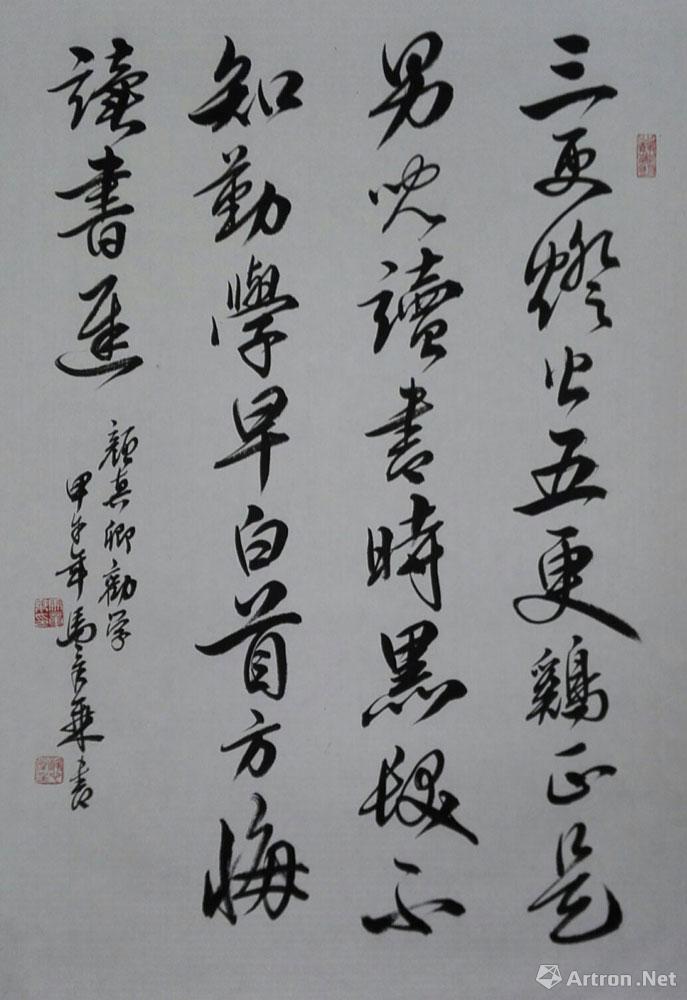 三更燈火五更鷄正是
男兒讀書時黑髮不
知勤學早白首方悔
讀書遲
顏真卿勸学
甲午年馬秉書
Artron.Net